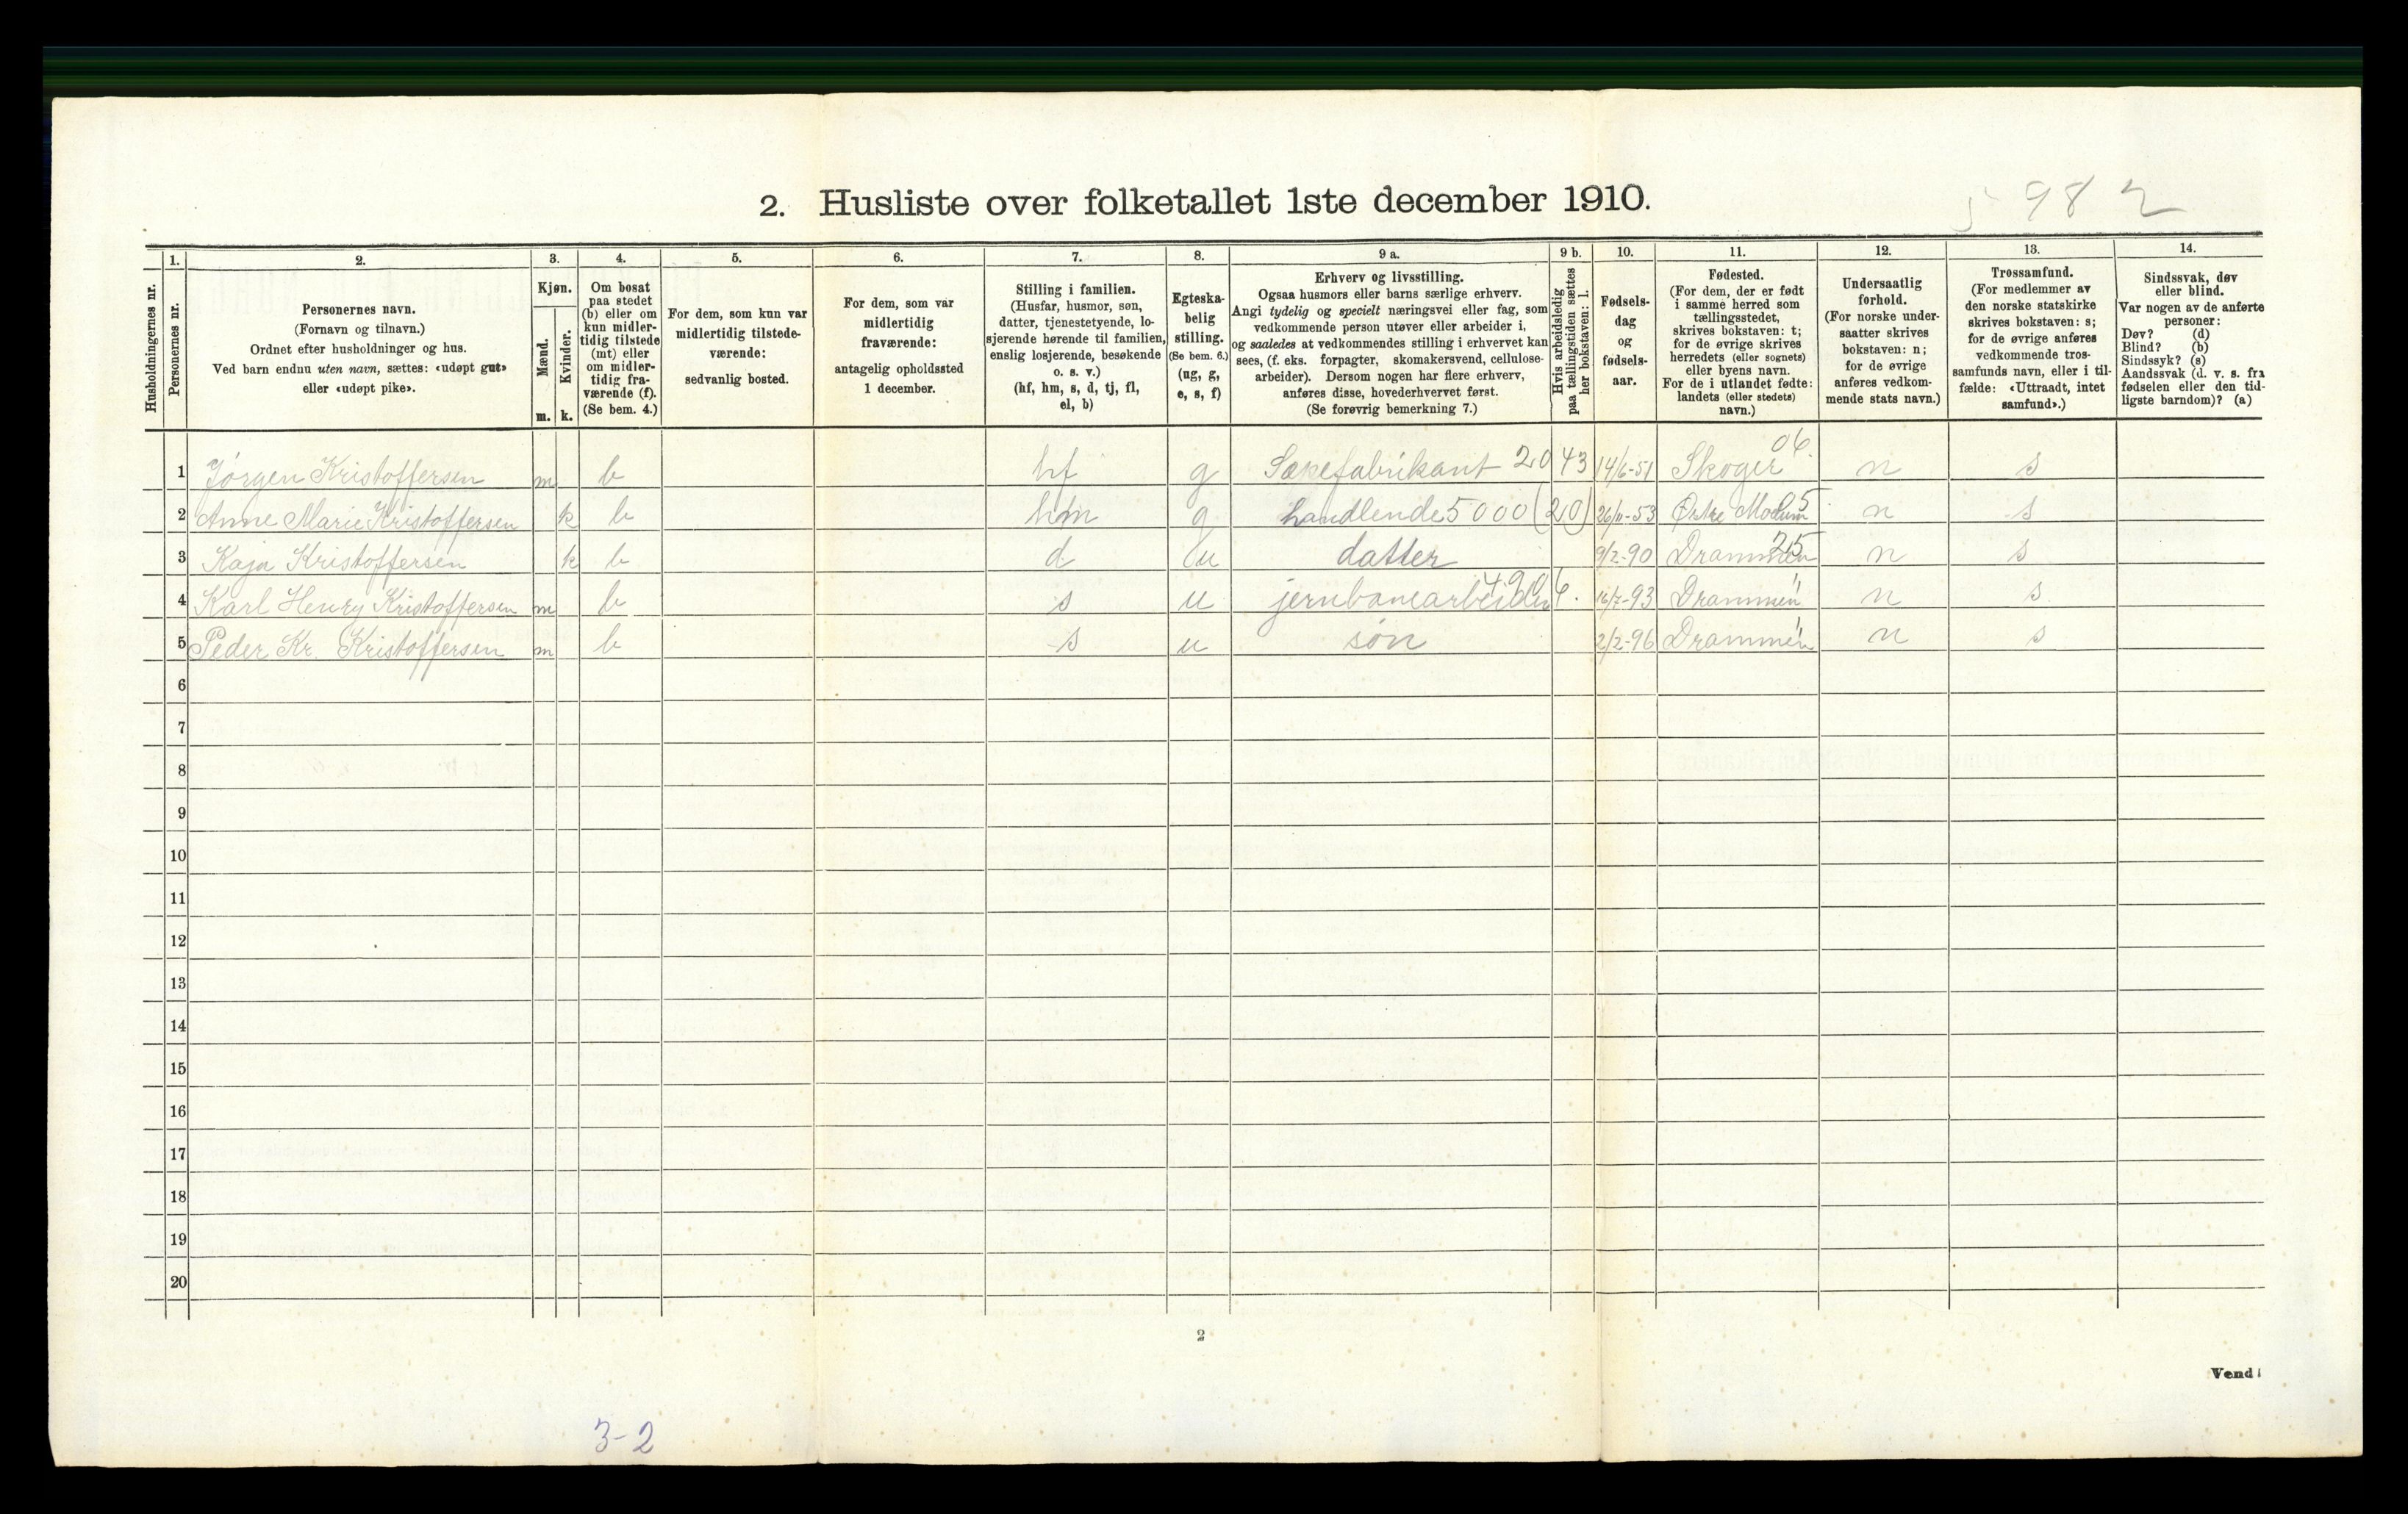 982
2. Husliste over folketallet 1ste december 1910.
Husholdningernes nr.
1.
Personernes nr.
2.
Personernes navn.
(Fornavn og tilnavn.)
Ordnet efter husholdninger og hus.
Ved barn endnu uten navn, sættes: «udøpt gut»
eller «udøpt pike».
3.
Kjøn.
Mænd.
Kvinder.
m. k.
4.
Om bosat
paa stedet
(b) eller om
kun midler-
tidig tilstede
(mt) eller
om midler-
tidig fra-
værende (f).
(Se bem. 4.)
5.
For dem, som kun var
midlertidig tilstede-
værende:
sedvanlig bosted.
6.
For dem, som var
midlertidig
fraværende:
antagelig opholdssted
1 december.
7.
Stilling i familien.
(Husfar, husmor, søn,
datter, tjenestetyende, lo-
sjerende hørende til familien,
enslig losjerende, besøkende
o. s. v.)
(hf, hm, s, d, tj, fl,
el, b)
8.
Egteska-
belig
stilling.
(Se bem. 6.)
(ug, g,
e, s, f)
9 a.
Erhverv og livsstilling.
Ogsaa husmors eller barns særlige erhverv.
Angi tydelig og specielt næringsvei eller fag, som
vedkommende person utøver eller arbeider i,
og saaledes at vedkommendes stilling i erhvervet kan
sees, (f. eks. forpagter, skomakersvend, cellulose-
arbeider). Dersom nogen har flere erhverv,
anføres disse, hovederhvervet først.
(Se forøvrig bemerkning 7.)
9 b.
Hvis arbeidsledig
paa tællingstiden sættes
her bokstaven: l.
10.
Fødsels-
dag
og
fødsels-
aar.
11.
Fødested.
(For dem, der er født
i samme herred som
tællingsstedet,
skrives bokstaven: t;
for de øvrige skrives
herredets (eller sognets)
eller byens navn.
For de i utlandet fødte:
landets (eller stedets)
navn.)
12.
Undersaatlig
forhold.
(For norske under-
saatter skrives
bokstaven: n;
for de øvrige
anføres vedkom-
mende stats navn.)
13.
Trossamfund.
(For medlemmer av
den norske statskirke
skrives bokstaven: s;
for de øvrige anføres
vedkommende tros-
samfunds navn, eller i til-
fælde: «Uttraadt, intet
samfund».)
14.
Sindssvak, døv
eller blind.
Var nogen av de anførte
personer:
Døv? (d)
Blind? (b)
Sindssyk? (s)
Aandssvak (d. v. s. fra
fødselen eller den tid-
ligste barndom)? (a)
1 Jørgen Kristoffersen m b hf g Sæpefabrikant 20 43 14/6-51 Skoger 06. n s
2 Anne Marie Kristoffersen k b hm g handlende 5000 (20) 26/11-53 Østre Modum 5 n s
3 Kaja Kristoffersen k b d u datter 9/2-90 Drammen 25 n s
4 Karl Henry Kristoffersen m b s u jernbanearbeider 490 6. 16/7-93 Drammen " n s
5 Peder Kr. Kristoffersen m b s u søn 2/2-96 Drammen " n s
6
7
8
9
10
11
12
13
14
15
16
17
18
19
20
2
Vend!
3-2